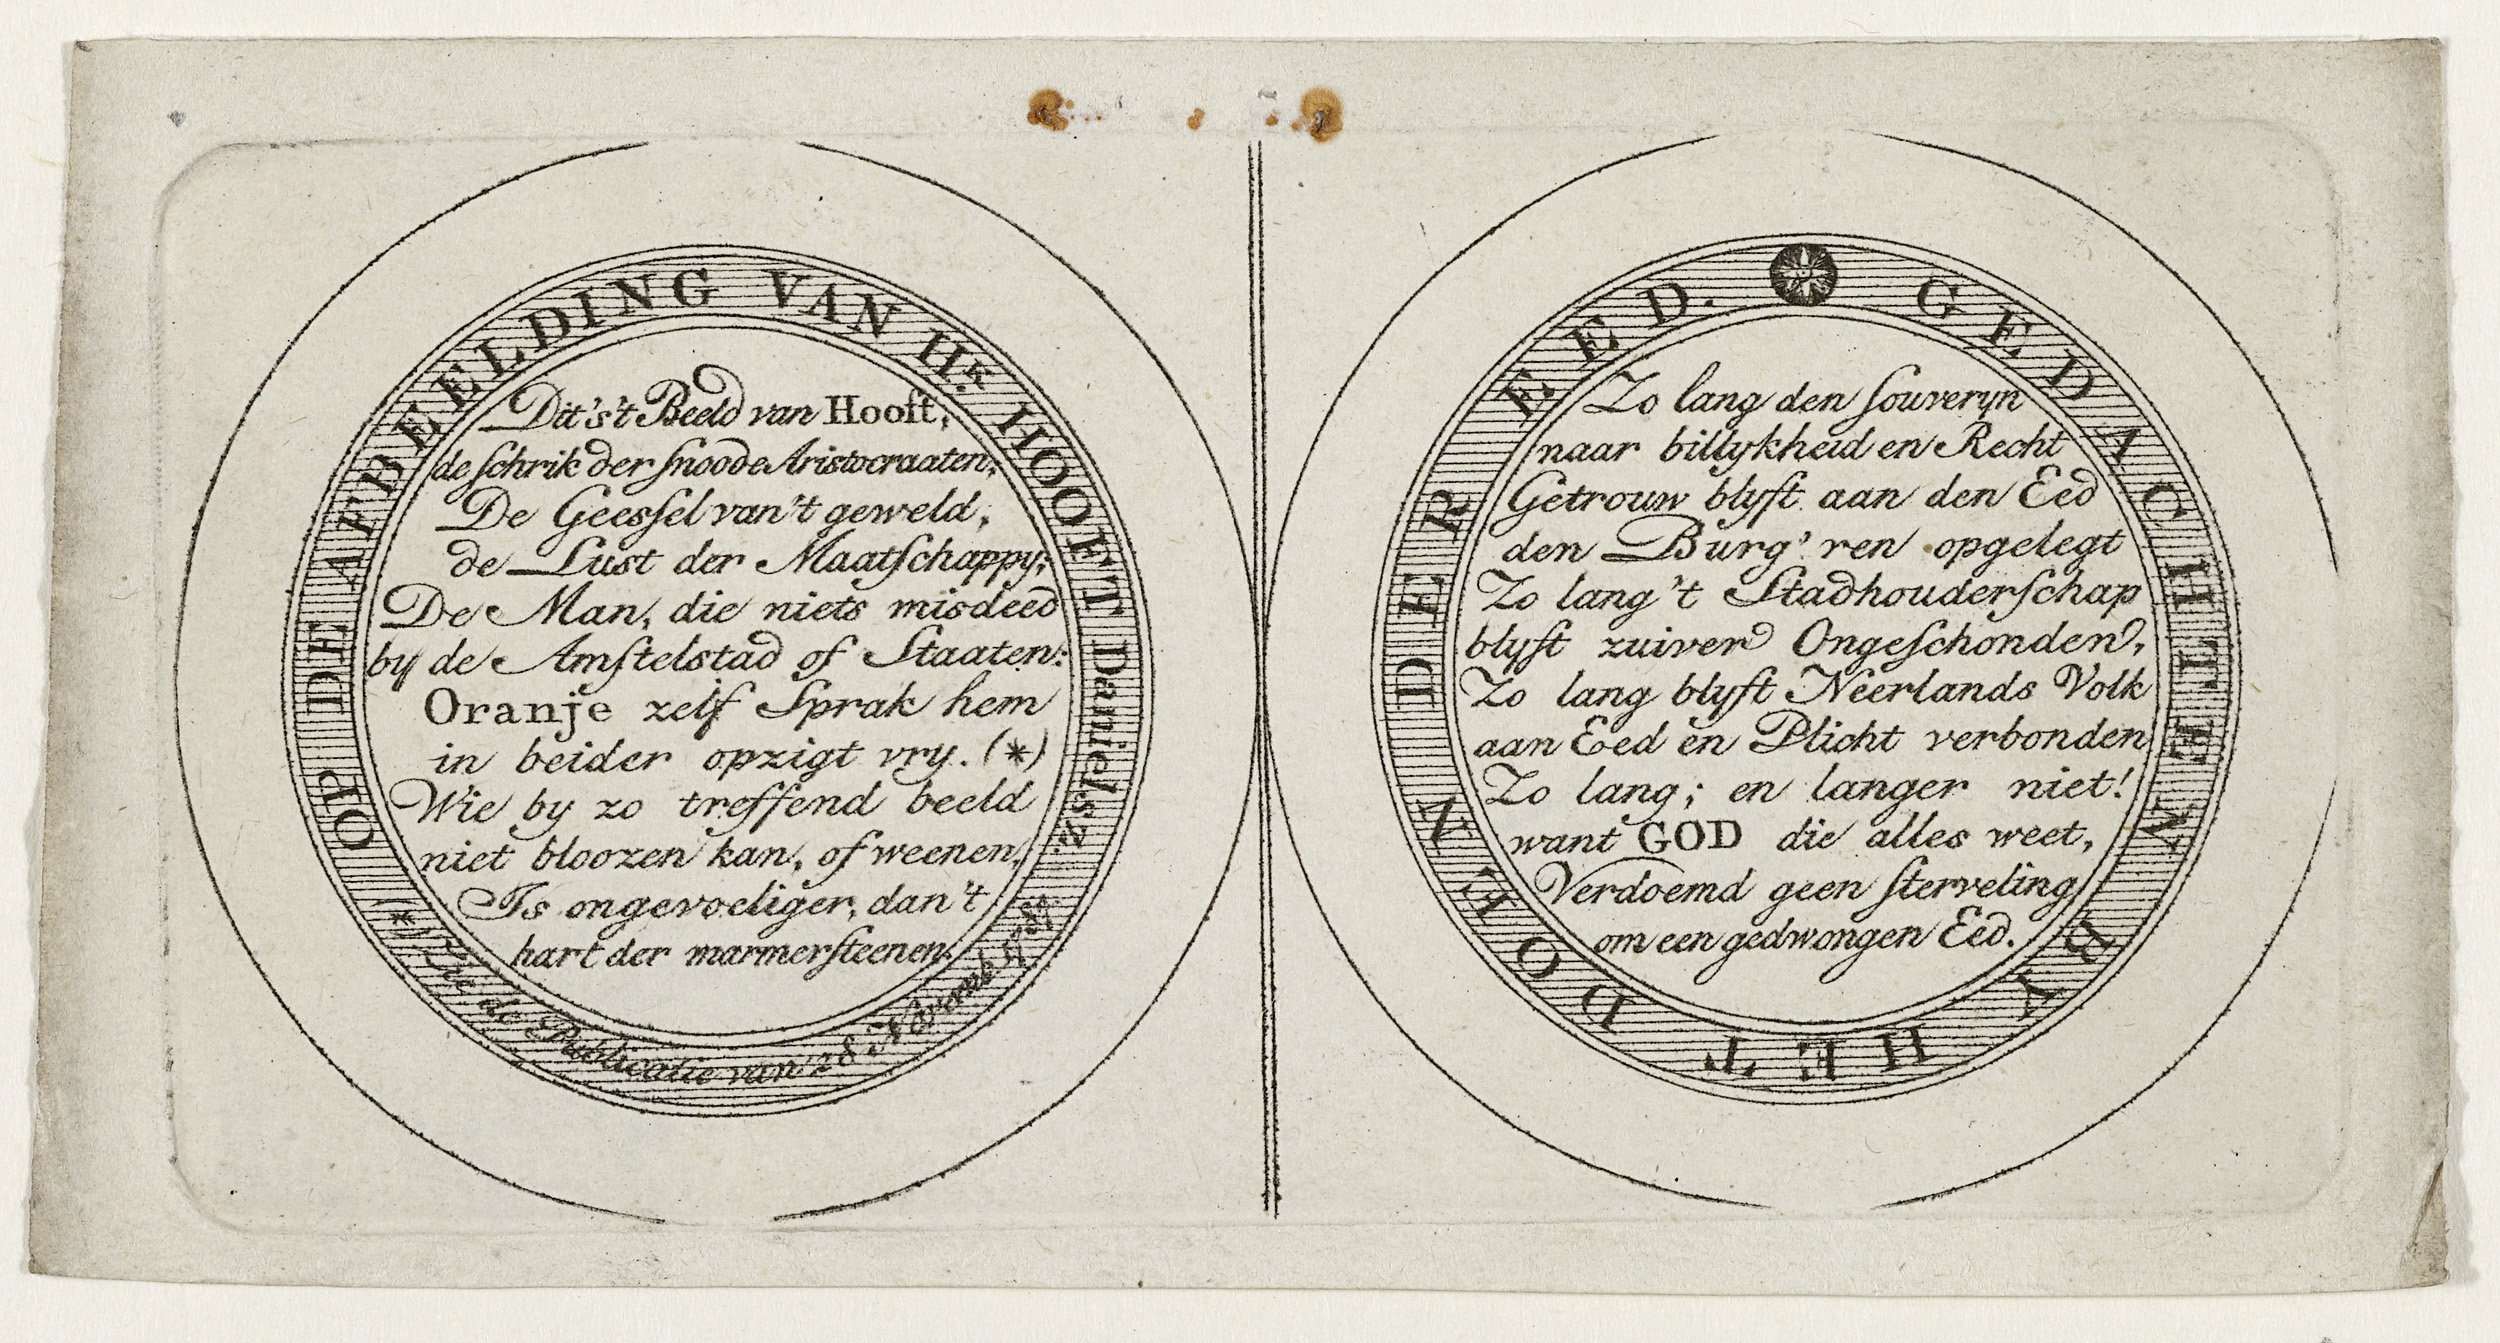 OP DE AFBEELDING VAN Hr. HOOFT Danielsz.
Dit's't Beeld van Hooft,
de schrik der snoode Aristocraaten,
De Geessel van't geweld,
de Lust der Maatschappy;
De Man, die niets misdeed
by de Amstelstad of Staaten:
Oranje zelf Sprak hem
in beider opzigt vry. (*)
Wie by zo treffend beeld
niet bloozen kan, of weenen,
Is ongevoeliger, dan't
hart der marmersteenen.
(*) Zie de Publicatie van 28 Novemb. 1787.
GEDACHTEN BY HET DOEN DER EED.
Zo lang den souveryn
naar billykheid en Recht
Getrouw blyft aan den Eed
den Burg'ren opgelegt
Zo lang 't Stadhouderschap
blyft zuiver Ongeschonden,
Zo lang blyft Neerlands Volk
aan Eed en Plicht verbonden
Zo lang; en langer niet!
want GOD die alles weet,
Verdoemd geen sterveling
om een gedwongen Eed.